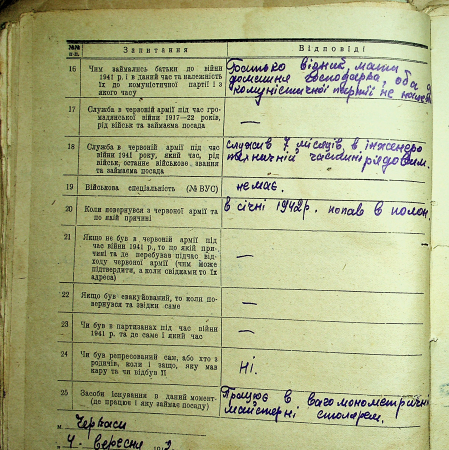 №№ п.п.
Запитання
Відповіді
16
Чим займались батьки до війни
1941 р. і в даний час та належність
їх до комуністичної партії і з
якого часу
Батько візник, мати
домашня господарка, оба
комуністичної партії не
17
Служба в червоній армії під час гро-
мадянської війни 1917—22 років,
рід військ та займаєма посада
—
18
Служба в червоній армії під час
війни 1941 року, який час, рід
військ, останнє військове звання
та займаєма посада
служив 7 місяців, в інженеро
технічній частині рядовим.
19
Військова спеціальність (№ ВУС)
немає.
20
Коли повернувся з червоної армії та
по якій причині
в січні 1942р. попав в полон.
21
Якщо не був в червоній армії під
час війни 1941 р., то по якій при-
чині та де перебував підчас від-
ходу червоної армії (чим може
підтвердити, а коли свідками то їх
адреса)
—
22
Якщо був евакуйований, то коли по-
вернувся та звідки саме
—
23
Чи був в партизанах під час війни
1941 р. та де саме і який час
—
24
Чи був репресований сам, або хто з
родичів, коли і защо, яку мав
кару та чи відбув її
Ні.
25
Засоби існування в даний момент
(де працює і яку займає посаду)
Працює в вагомонометричні
майстерні столярем.
м. Черкаси
"4" вересня 194